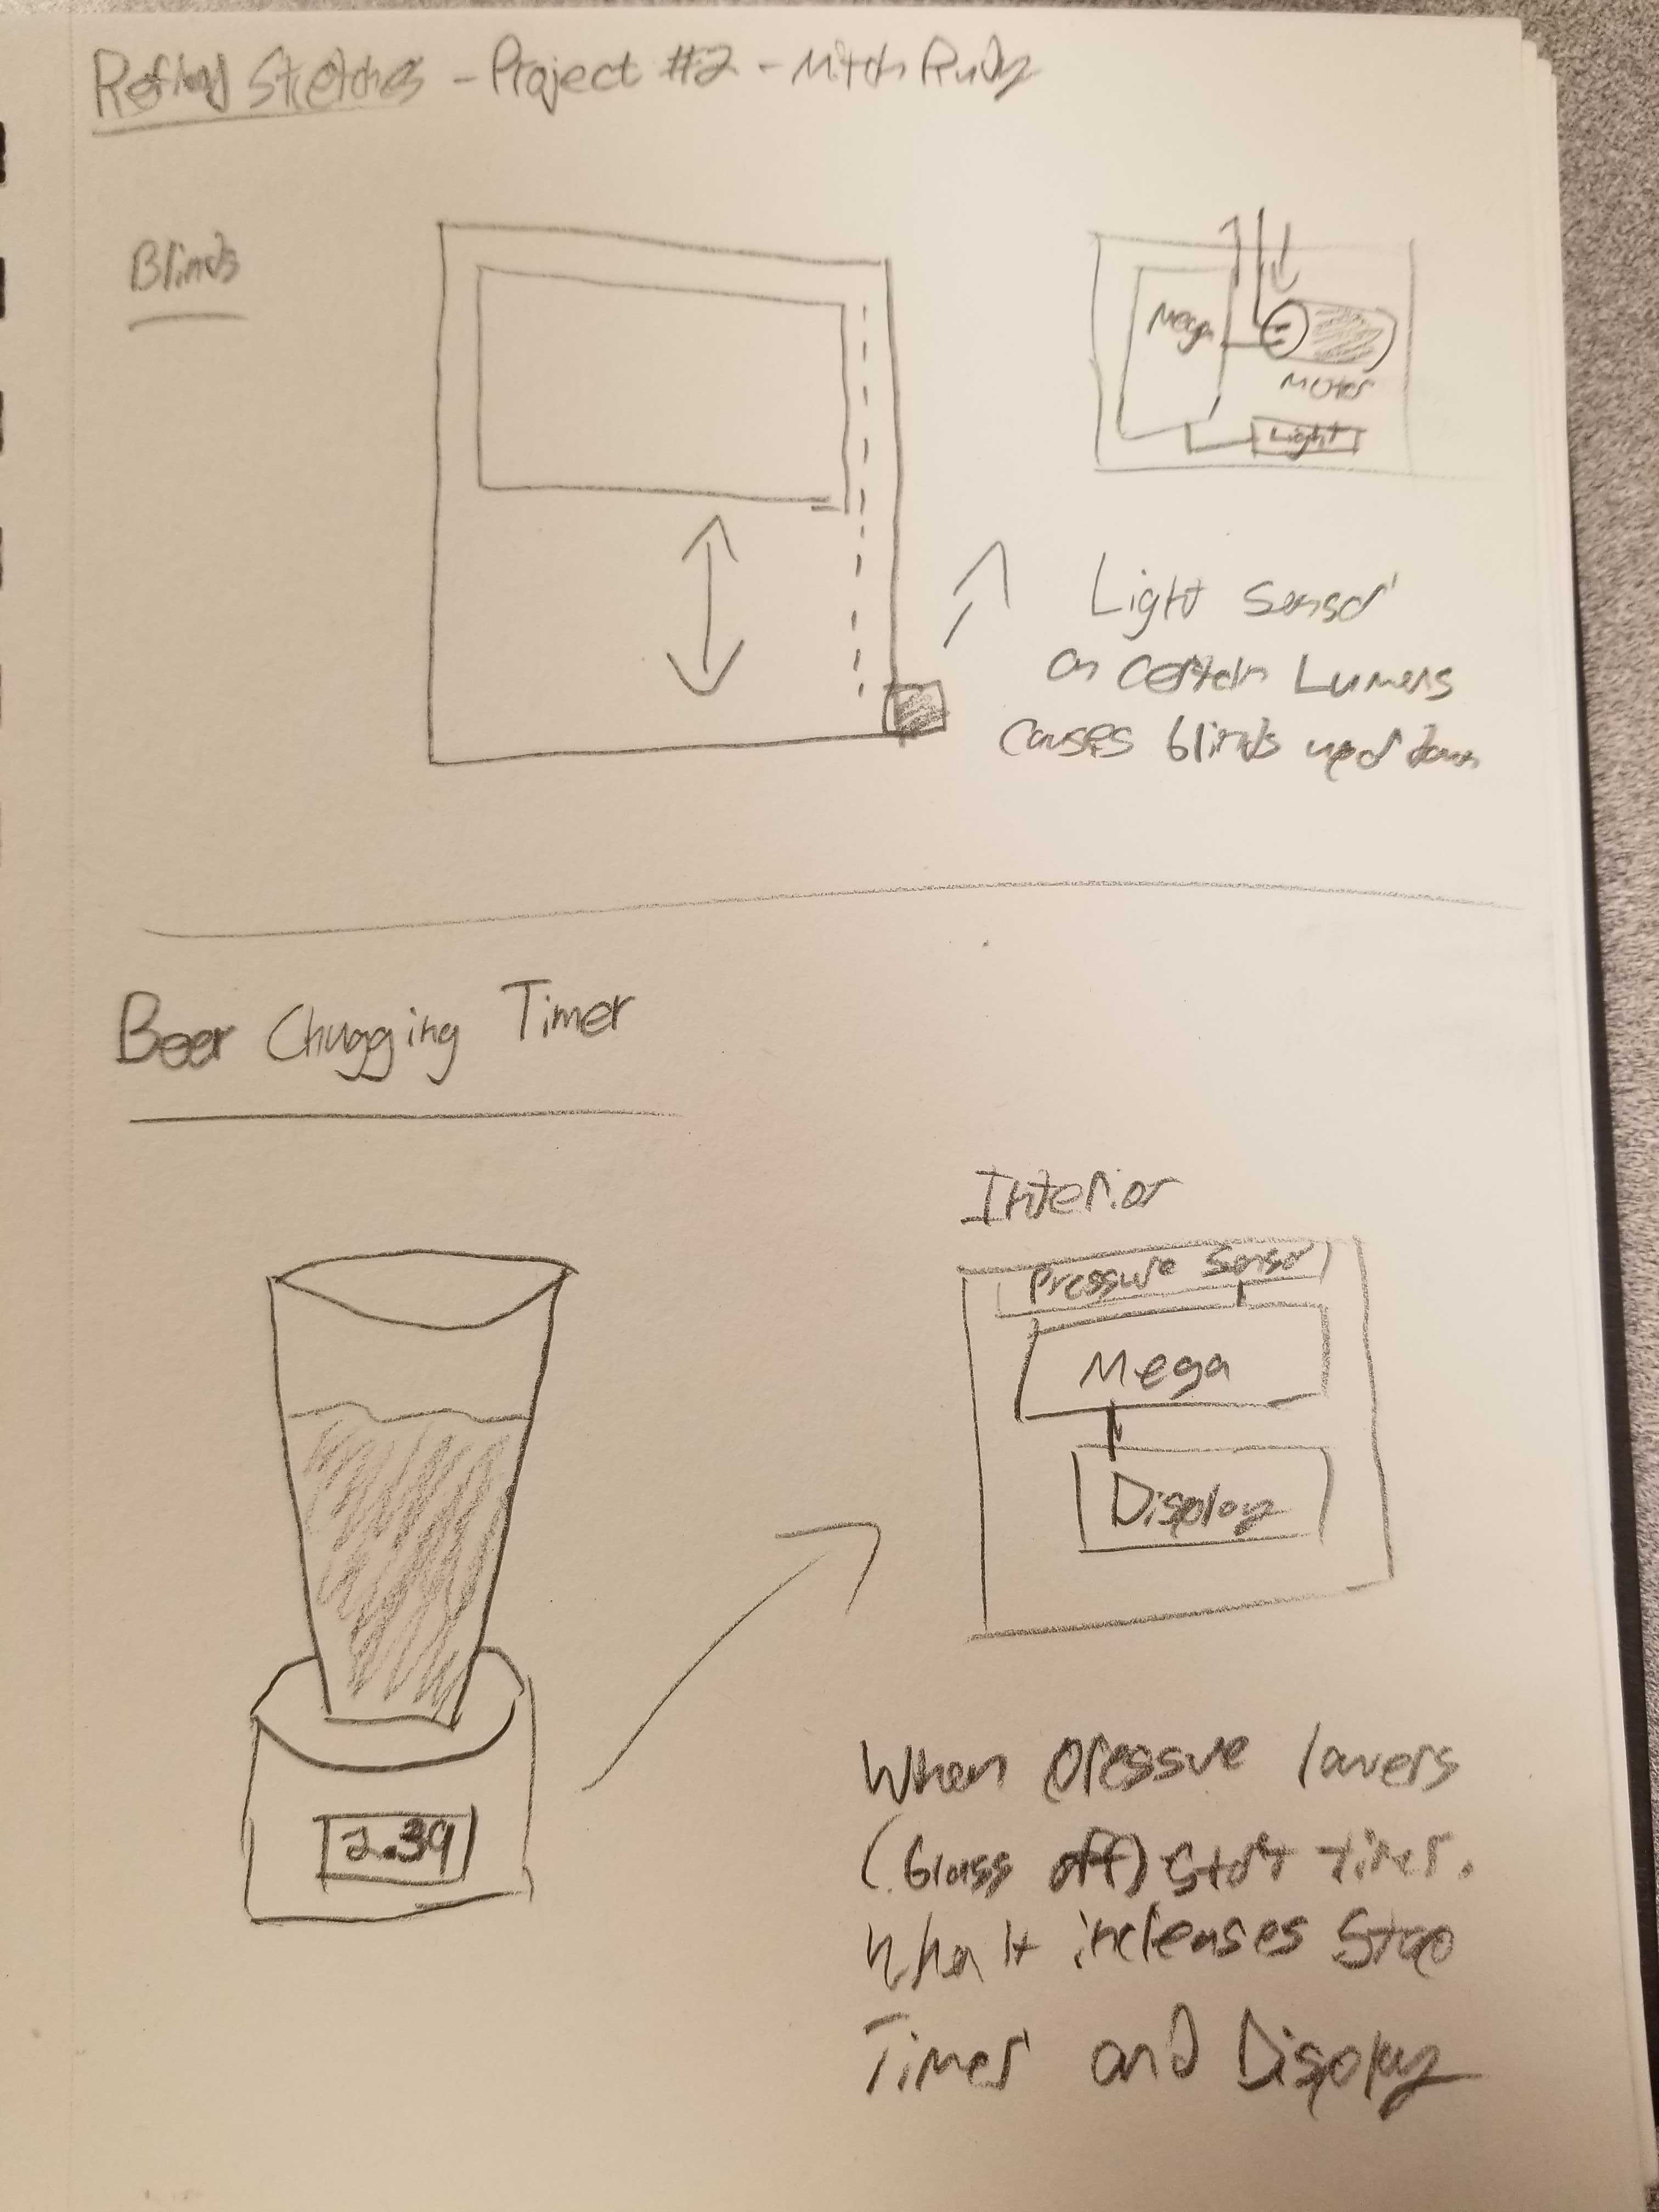 Refined Sketches - Project #2 - Mitch Rudy
Blinds
Mega
Motor
Light
Light Sensor
on certain Lumens
causes blinds up or down
Beer Chugging Timer
Interior
Pressure Sensor
Mega
Display
2.39
When pressure lowers
(Glass off) start timer.
When it increases Stop
Timer and Display